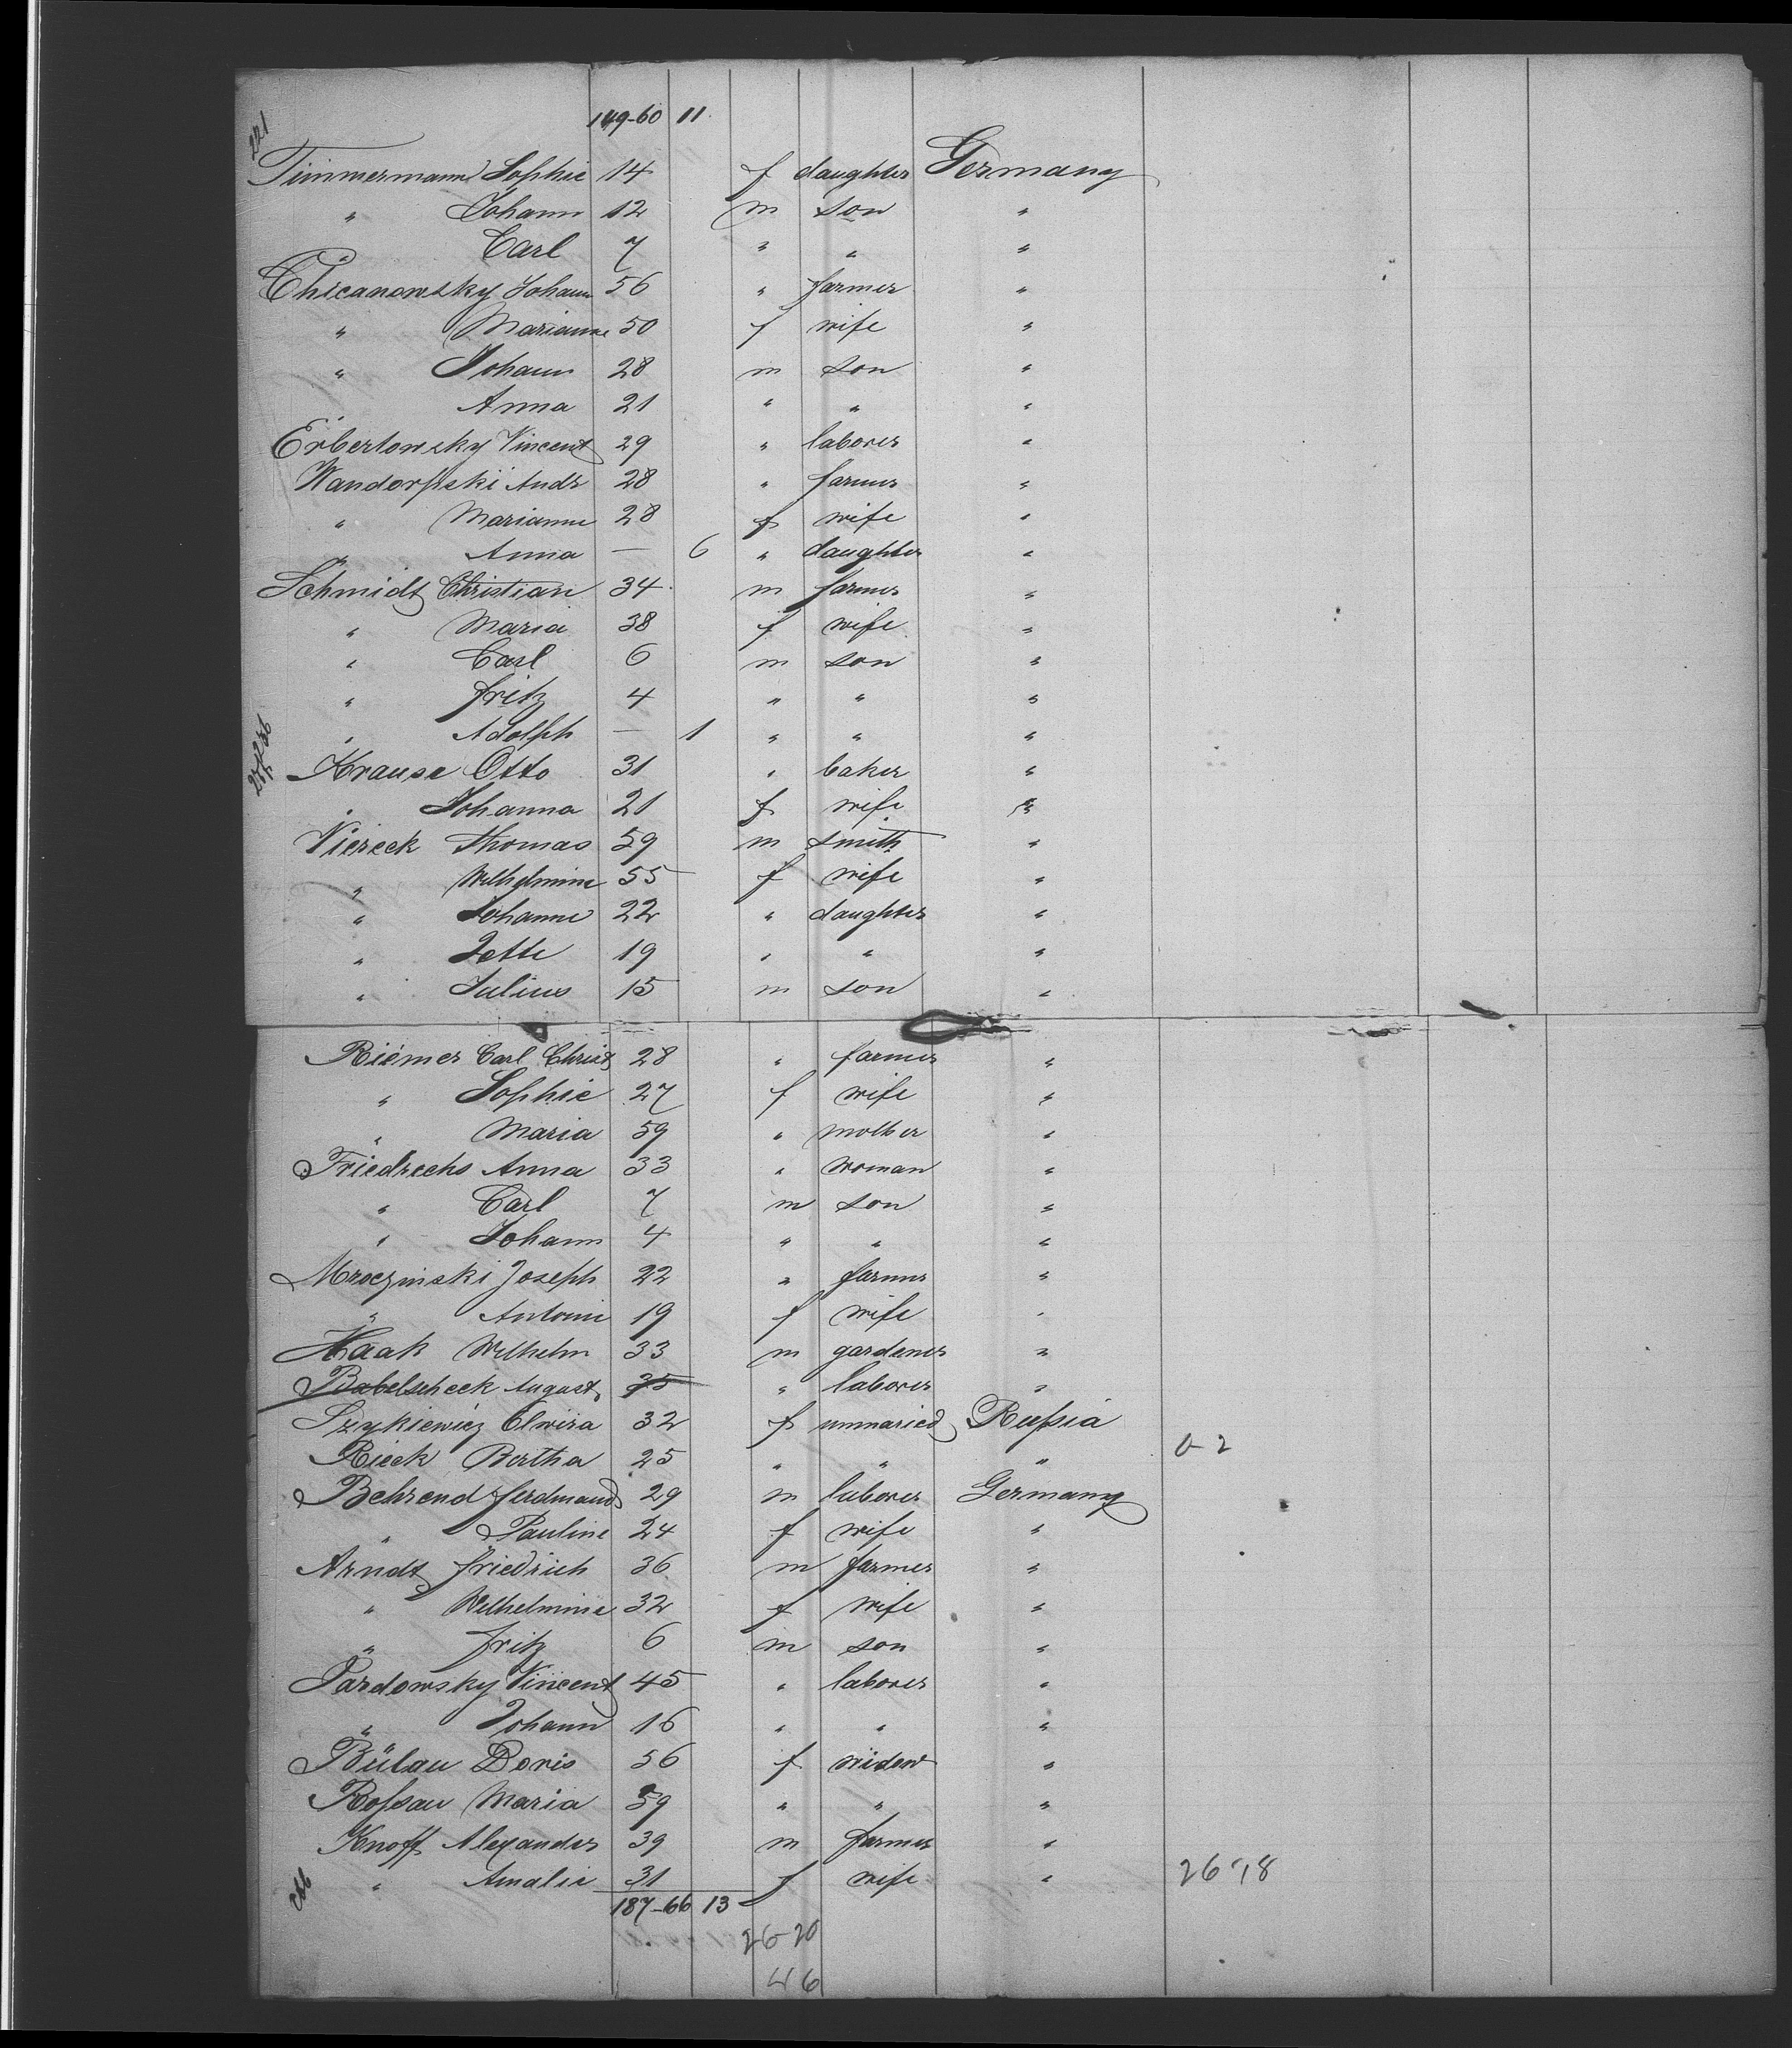 221
149-60 11
Timmermann Sophie 14 f daughter Germany
" Johann 12 m son "
" Carl 7 " " "
Chicanowsky Johann 56 " farmer "
" Marianne 50 f wife "
" Johann 28 m son "
" Anna 21 " " "
Erbertowsky Vincent 29 " laborer "
Wandorfski Andr 28 " farmer "
" Marianne 28 f wife "
" Anna — 6 " daughter "
Schmidt Christian 34 m farmer "
" Maria 38 f wife "
" Carl 6 m son "
" Fritz 4 " " "
" Adolph — 1 " " "
Krause Otto 31 " baker "
" Johanna 21 f wife "
Viereck Thomas 59 m smith "
" Wilhelmine 55 f wife "
" Johanne 22 " daughter "
" Jette 19 " " "
" Julius 15 m son "
Riemer Carl Christ 28 " farmer "
" Sophie 27 f wife "
" Maria 59 " mother "
Friedrechs Anna 33 " woman "
" Carl 7 m son "
" Johann 4 " " "
Mroczinski Joseph 22 " farmer "
" Antonie 19 f wife "
Haak Wilhelm 33 m gardener "
Babelscheck August 35 " laborer "
Szykiewicz Elwira 32 f unmaried Rußia
0-2
Rieck Bertha 25 " " "
Behrend Ferdinand 29 m laborer Germany
" Pauline 24 f wife "
Arndt Friedrich 36 m farmer "
" Wilhelmine 32 f wife "
" Fritz 6 m son "
Pardowsky Vincent 45 " laborer "
" Johann 16 " " "
Bülau Doris 56 f widow "
Roßau Maria 59 " " "
Knoff Alexander 39 m farmer "
" Amalie 31 f wife " 26-18
266
187-66 13
26-20
46